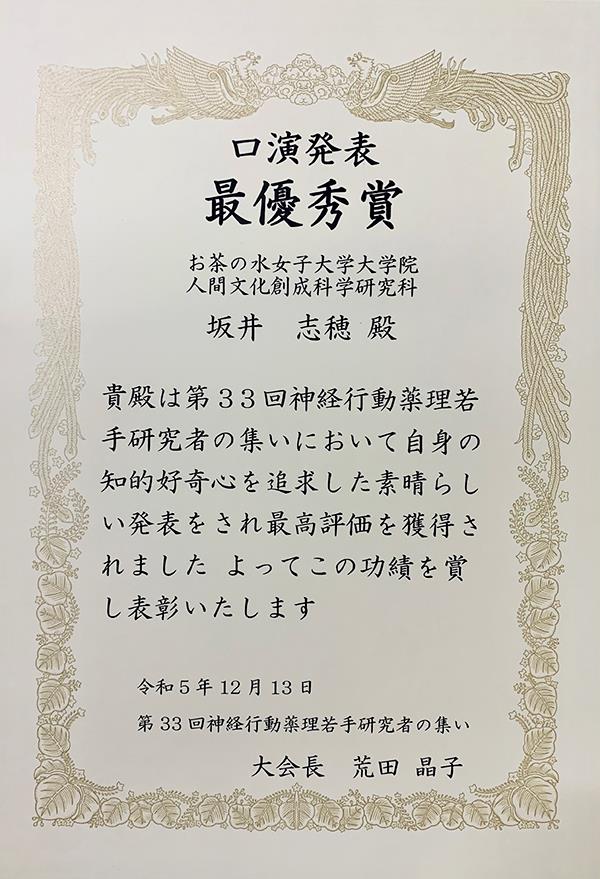 口演発表
最優秀賞
お茶の水女子大学大学院
人間文化創成科学研究科
坂井　志穂 殿
貴殿は第３３回神経行動薬理若
手研究者の集いにおいて自身の
知的好奇心を追求した素晴らし
い発表をされ最高評価を獲得さ
れました よってこの功績を賞
し表彰いたします
令和５年 12 月 13 日
第 33 回神経行動薬理若手研究者の集い
大会長　荒田 晶子